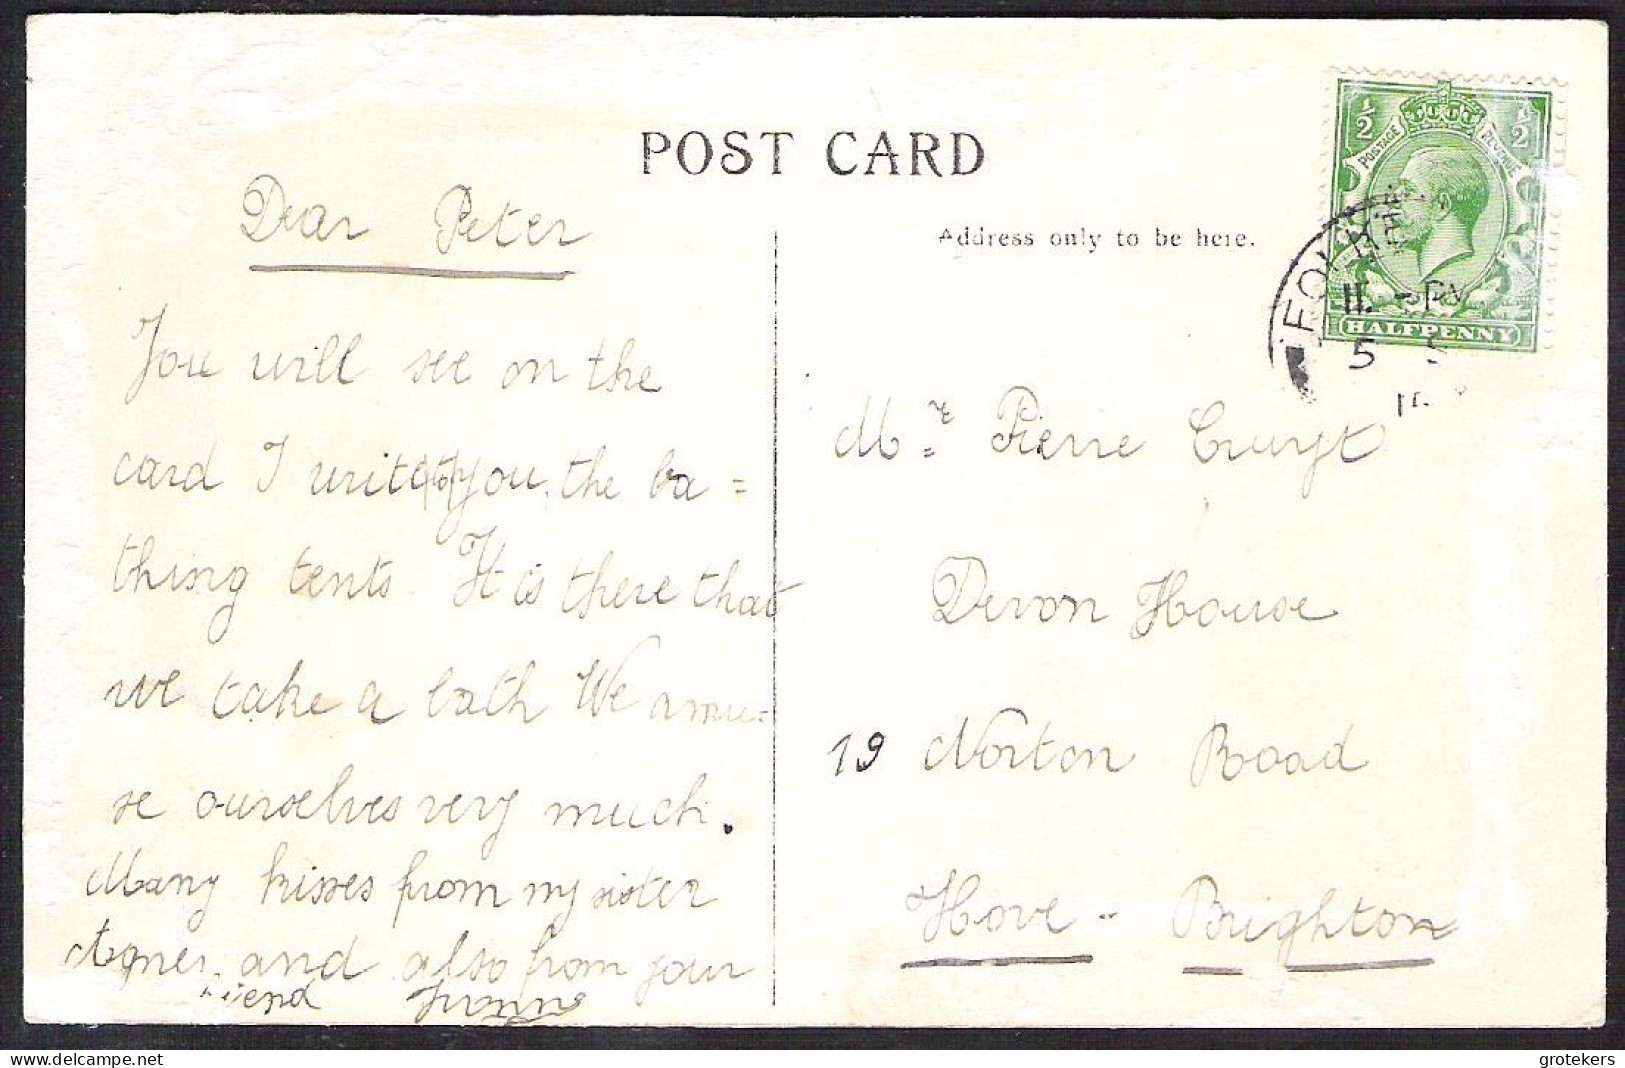 POST CARD
Address only to be here.
½ ½
POSTAGE REVENUE
HALFPENNY
FOLK
11. - PM
5
Dear Peter
You will see on the
card I write (to) you, the ba=
thing tents. It is there that
we take a bath We amu-
se ourselves very much.
Many kisses from my sister
Agnes, and also from your
friend
Mr. Pierre Cruyt
Devon House
19 Norton Road
Hove - Brighton
grotekers
delcampe.net